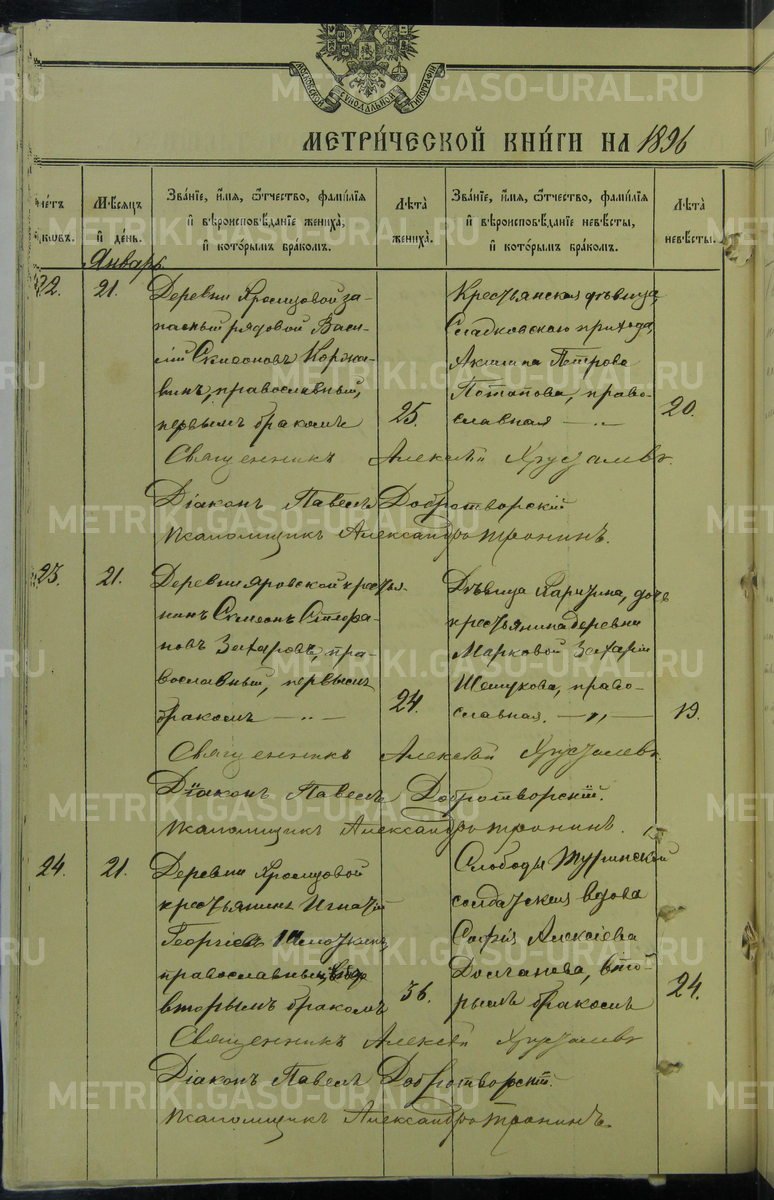 МОСКОВСКОЙ СѴНОДАЛЬНОЙ ТИПОГРАФІИ
МЕТРИ́ЧЕСКОЙ КНИ́ГИ НА 1896
Счетъ браковъ.
Мѣсяцъ и день.
Зва́ніе, и́мя, ѻ҆́тчество, фами́лія и вѣроисповѣ́даніе жениха́, и кото́рымъ бра́комъ.
Лѣта̀ жениха̀.
Зва́ніе, и́мя, ѻ҆́тчество, фами́лія и вѣроисповѣ́даніе невѣ́сты, и кото́рымъ бра́комъ.
Лѣта̀ невѣ́сты.
Январь.
22.
21.
Деревни за-
пасный рядовой Васи-
лій Симеоновъ Коржа-
винъ, православный,
первымъ бракомъ
25.
Крестьянская дѣвица,
Сладковскаго прихода,
Акилина Петрова
Потапова, право-
славная — „ —
20.
Священникъ Алексѣй Хрусталевъ.
Діаконъ Павелъ Добротворскій
Псаломщикъ Александръ Тронинъ.
23.
21.
Деревни Яровской кресть-
янинъ Симеонъ Стефа-
новъ Захаровъ, пра-
вославный, первымъ
бракомъ — „ —
24.
Дѣвица дочь
крестьянина деревни
Марковой Захарія
право-
славная. — „ —
19.
Священникъ Алексѣй Хрусталевъ.
Діаконъ Павелъ Добротворскій.
Псаломщикъ Александръ Тронинъ.
24.
21.
Деревни
крестьянинъ Игнатій
Георгіевъ
православный,
вторымъ бракомъ
36.
Слободы Туринской
солдатская вдова
Софія Алексіева
Долганова, вто-
рымъ бракомъ
24.
Священникъ Алексѣй Хрусталевъ
Діаконъ Павелъ Добротворскій.
Псаломщикъ Александръ Тронинъ.
METRIKI.GASO-URAL.RU